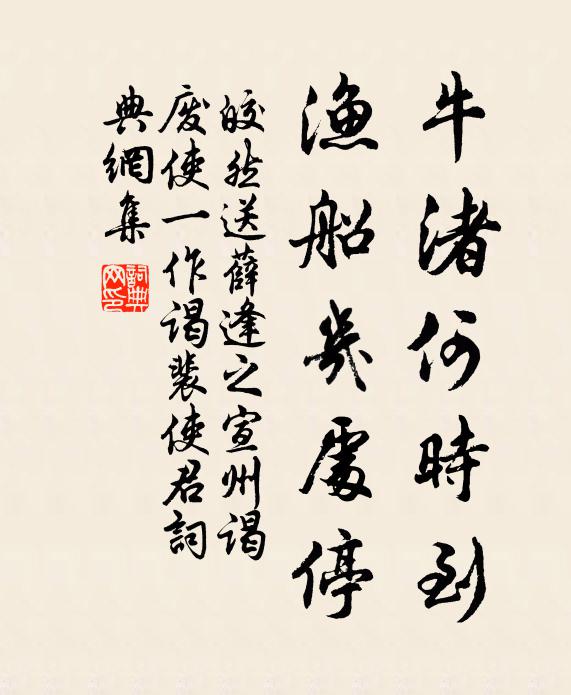 牛渚何時到
漁船幾處停
皎然送薛逢之宣州謁
废使一作谒裴使君詞
典網集
詞典网印